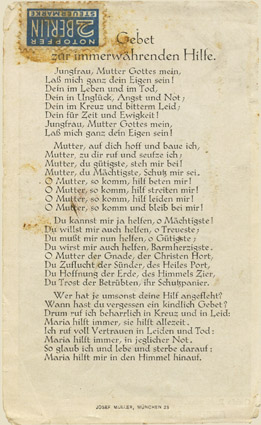 NOTOPFER
2 BERLIN
STEUERMARKE
Gebet
zur immerwährenden Hilfe.
Jungfrau, Mutter Gottes mein,
Laß mich ganz dein Eigen sein!
Dein im Leben und im Tod,
Dein in Unglück, Angst und Not;
Dein im Kreuz und bitterm Leid;
Dein für Zeit und Ewigkeit!
Jungfrau, Mutter Gottes mein,
Laß mich ganz dein Eigen sein!
Mutter, auf dich hoff und baue ich,
Mutter, zu dir ruf und seufze ich;
Mutter, du gütigste, steh mir bei!
Mutter, du Mächtigste, Schutz mir sei.
O Mutter, so komm, hilf beten mir!
O Mutter, so komm, hilf streiten mir!
O Mutter, so komm, hilf leiden mir!
O Mutter, so komm und bleib bei mir!
Du kannst mir ja helfen, o Mächtigste!
Du willst mir auch helfen, o Treueste;
Du mußt mir nun helfen, o Gütigste;
Du wirst mir auch helfen, Barmherzigste.
O Mutter der Gnade, der Christen Hort,
Du Zuflucht der Sünder, des Heiles Port,
Du Hoffnung der Erde, des Himmels Zier,
Du Trost der Betrübten, ihr Schutzpanier.
Wer hat je umsonst deine Hilf angefleht?
Wann hast du vergessen ein kindlich Gebet?
Drum ruf ich beharrlich in Kreuz und in Leid:
Maria hilft immer, sie hilft allezeit.
Ich ruf voll Vertrauen in Leiden und Tod:
Maria hilft immer, in jeglicher Not.
So glaub ich und lebe und sterbe darauf:
Maria hilft mir in den Himmel hinauf.
JOSEF MÜLLER, MÜNCHEN 23